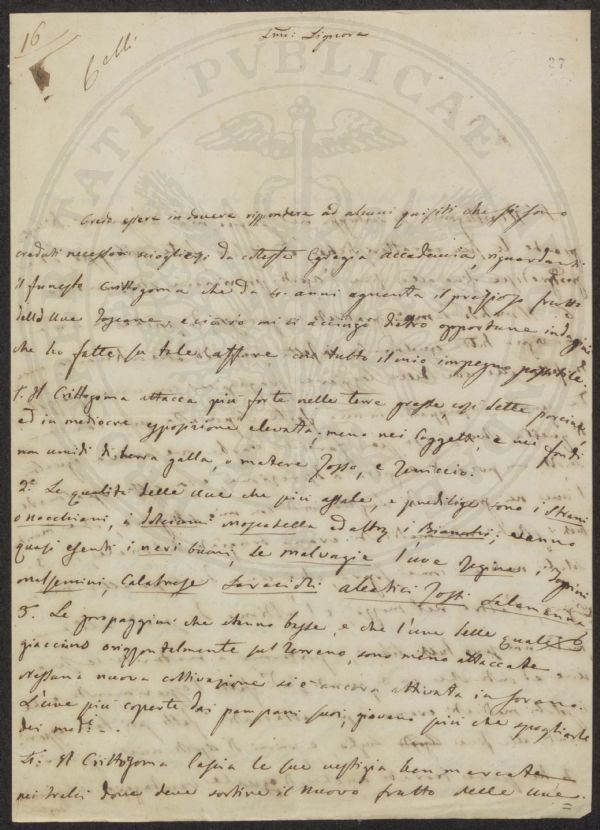 16
27
TATI PVBLICAE
Credo essere in dovere rispondere ad alcuni quisiti che si sono
creduti necessari sciogliersi da cotesta Egregia accademia, riguardanti
il funesto Crittogama che da 4. anni aguenta il prezioso frutto
delle Uve Toscane, e ciò io mi ci accingo dietro opportune indagini
che ho fatte su tale affare con tutto il mio impegno possibile
1.° Il Crittogama attacca più forte nelle terre grasse così dette
ed in mediocre esposizione elevata, meno nei soggetti, e nei fondi
non umidi di terra galla, o matere Tosso, e
2.° Le qualità delle Uve che più assale, e predilige sono i
moscadella ed altri i Bianchi;
quasi esenti i neri buoni, le malvagie l'uve Regine i
Calabrese aleatici Salamanna
3. Le propaggini che stanno basse, e che l'uve delle quali
giacciono orizzontalmente sul terreno, sono meno attaccate
nessuna nuova coltivazione si è ancora attivata in
L'uve più coperte dai pampani suoi, giovano più che spogliarle
dei med.i
4.° Il Crittogama lascia le sue vestigia ben marcate
nei tralci dove deve sortire il nuovo frutto delle Uve.